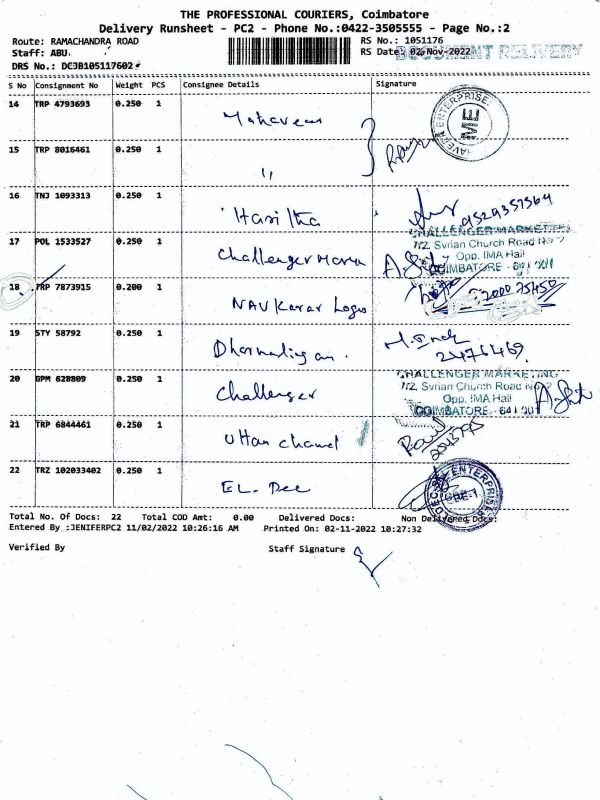 THE PROFESSIONAL COURIERS, Coimbatore
Delivery Runsheet - PC2 - Phone No.:0422-3505555 - Page No.:2
Route: RAMACHANDRA ROAD
RS No.: 1051176
Staff: ABU
RS Date: 02-Nov-2022
DOCUMENT DELIVERY
DRS No.: DCJB105117602
S No Consignment No Weight PCS Consignee Details Signature
14 TRP 4793693 0.250 1 Mahaveer
15 TRP 8016461 0.250 1 "
16 TNJ 1093313 0.250 1 Haritha 9529357564
17 POL 1533527 0.250 1
CHALLENGER MARKETING
7/2, Syrian Church Road No 2
Opp. IMA Hall
COIMBATORE - 641 001
18 TRP 7873915 0.200 1 NAVKarar Logo
19 STY 58792 0.250 1 2476469
20 GPM 628809 0.250 1 Challenger
CHALLENGER MARKETING
7/2, Syrian Church Road No 2
Opp. IMA Hall
COIMBATORE - 641 001
21 TRP 6844461 0.250 1 Uttan chand
22 TRZ 102033402 0.250 1 EL. Dee
Total No. Of Docs: 22 Total COD Amt: 0.00 Delivered Docs: Non Delivered Docs:
Entered By :JENIFERPC2 11/02/2022 10:26:16 AM Printed On: 02-11-2022 10:27:32
Verified By Staff Signature